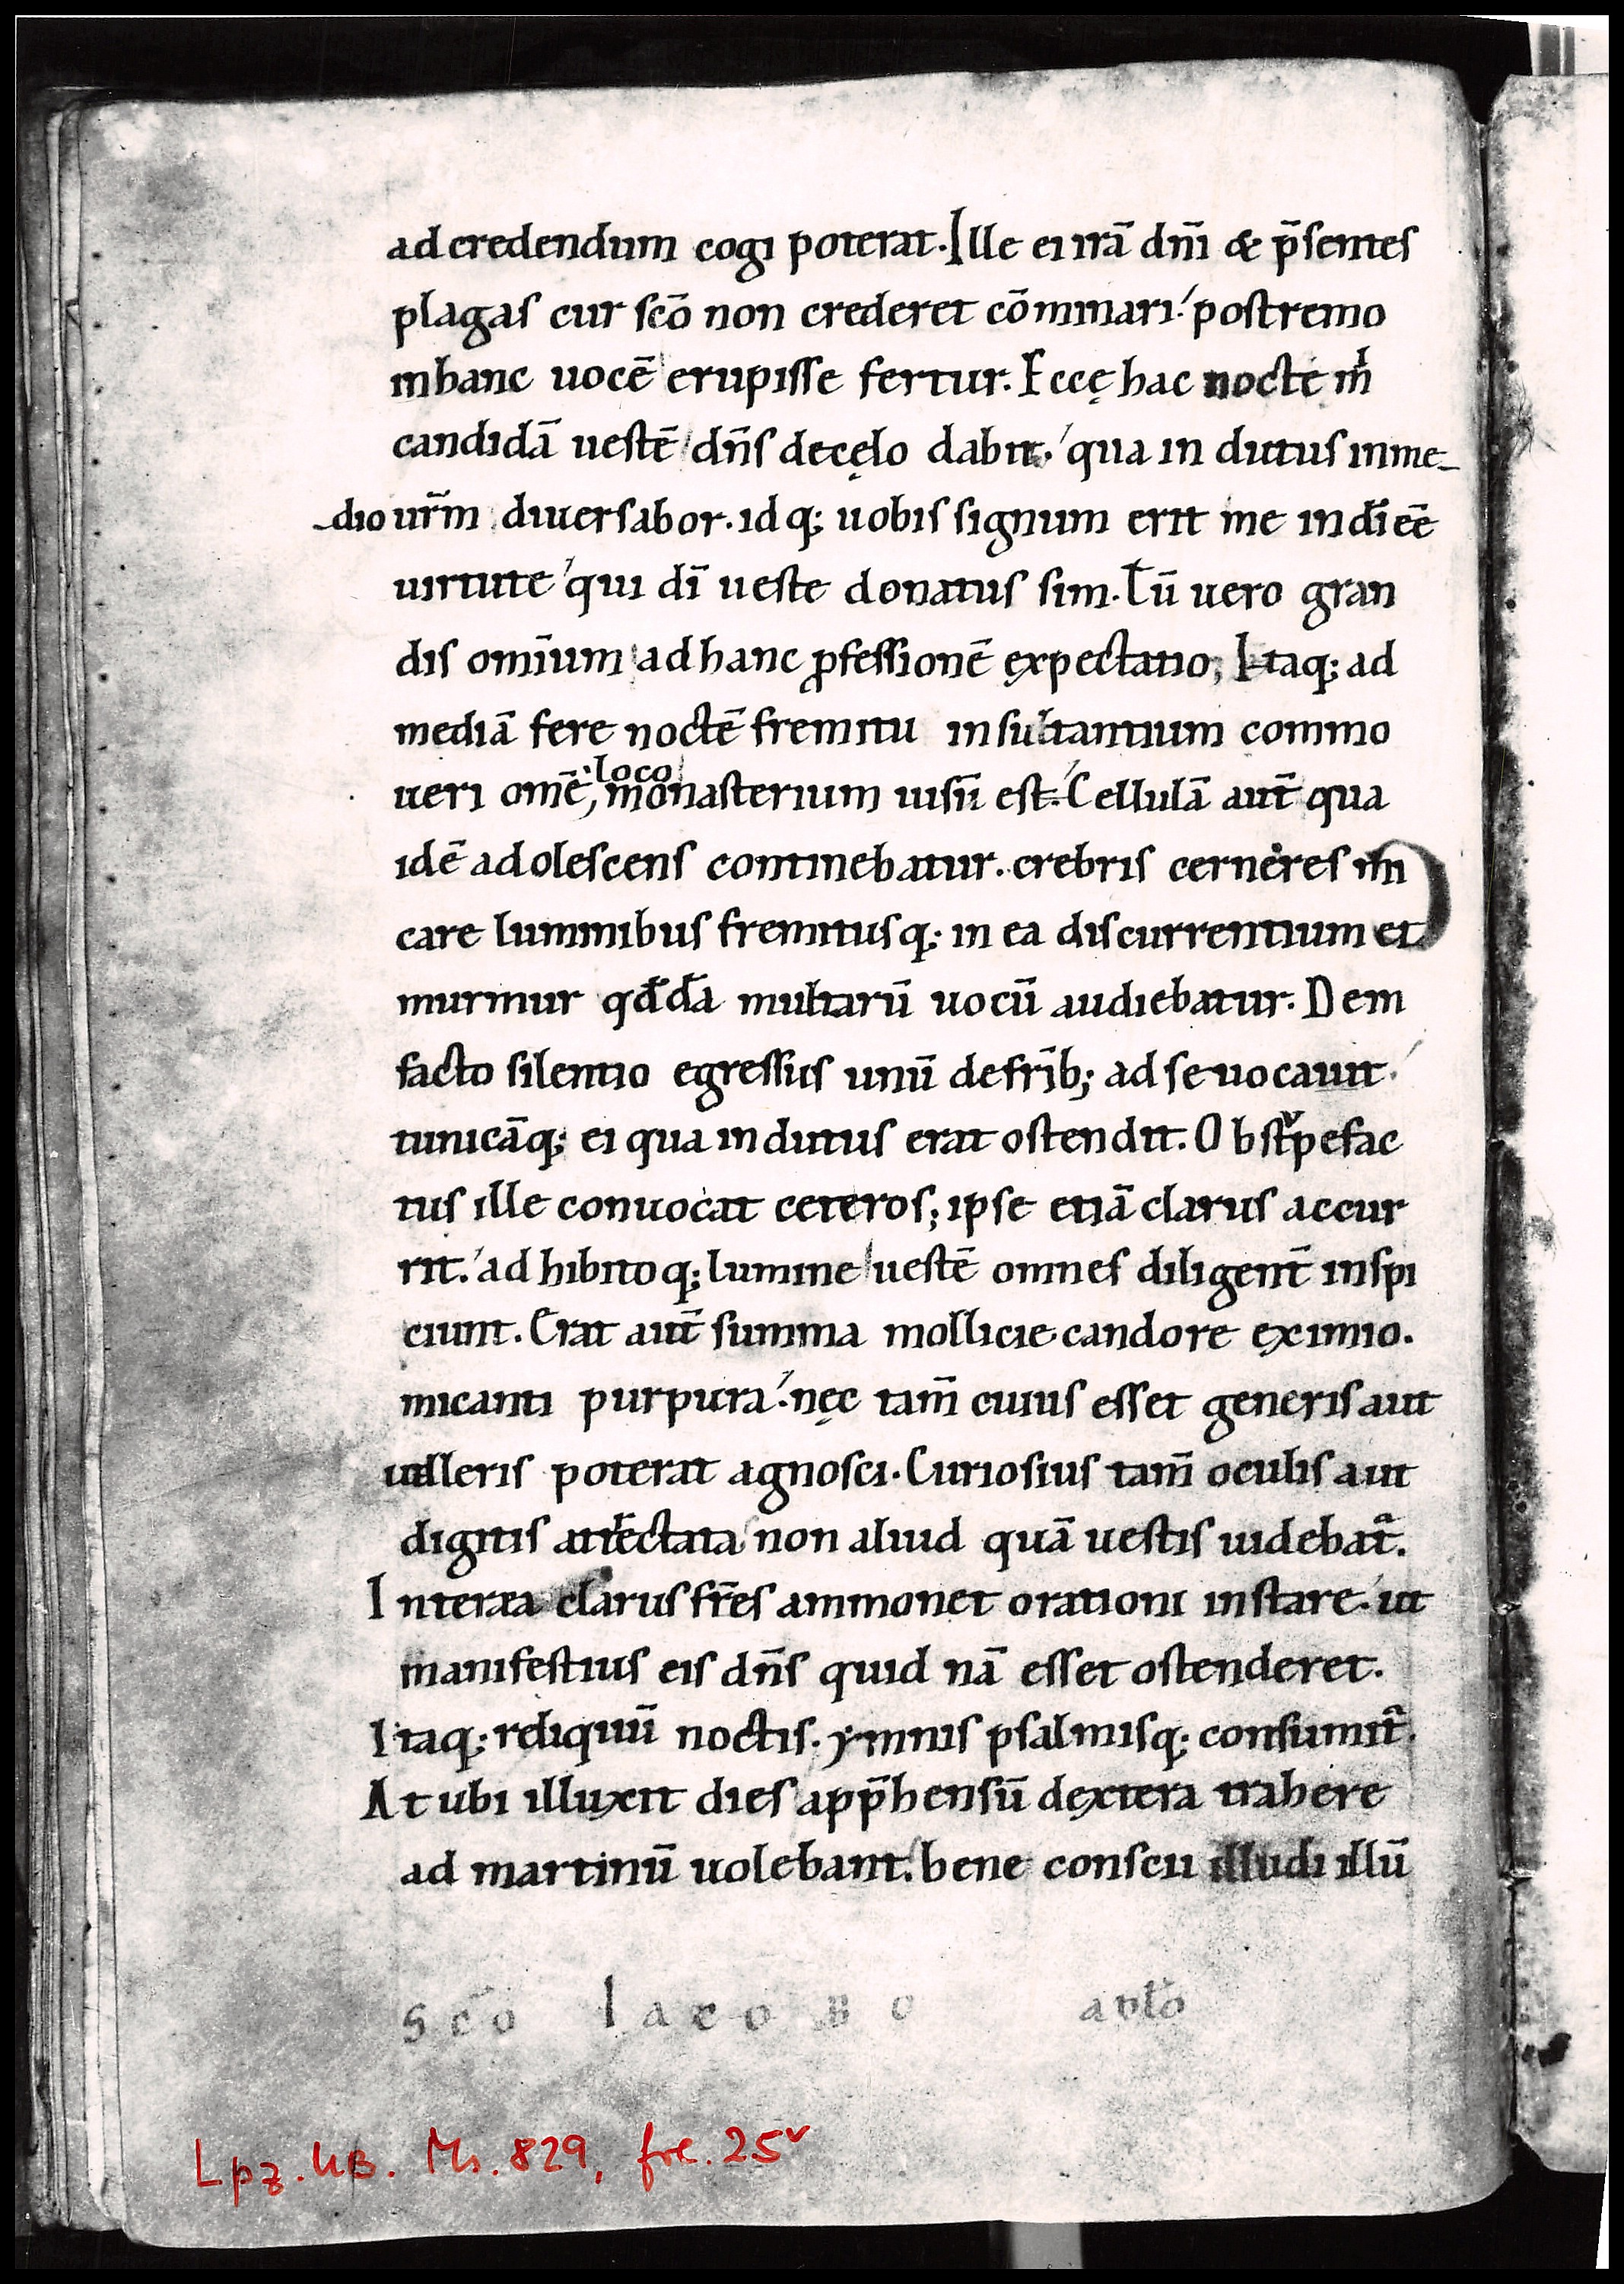 ad credendum cogi poterat. Ille ei irā dn̄i & p̄sentes
plagas cur sc̄o non crederet cōminari. postremo
inhanc uocē erupisse fertur. Eccę hac nocte m̄
candidā uestē dn̄s decęlo dabit. qua in dutus inme-
-dio ur̄m diuersabor. idq; uobis signum erit me in dī eē
uirtute qui dī ueste donatus sim. Tū uero gran
dis omīum ad hanc ꝓfessionē ęxpectatio, Itaq; ad
mediā fere noctē fremitu insultantium commo
ueri omē, monasterium uisū est. Cellulā aut̄ qua
loco
idē adolescens continebatur. crebris cerneres mi
care luminibus fremitusq; in ea discurrentium et
murmur qd̄dā multarū uocū audiebatur. Dein
facto silentio egressus unū defrīb; ad se uocauit.
tunicāq; ei qua indutus erat ostendit. Obstupefac
tus ille conuocat ceteros; ipse etiā clarus accur
rit. ad hibitoq; lumine uestē omnes diligent̄ inspi
ciunt. Erat aut̄ summa mollicie candore ęximio.
micanti purpura. nęc tam̄ cuius esset generis aut
uelleris poterat agnosci. Curiosius tam̄ oculis aut
digitis attrectata non aliud quā uestis uidebat̄.
Interea clarus fr̄es ammonet orationi instare. ut
manifestius eis dn̄s quid nā esset ostenderet.
Itaq; reliquū noctis. ymnis psalmisq; consumit̄.
At ubi illuxit dies app̄hensū dęxtera trahere
ad martinū uolebant. bene conscii illudi illū
Sc̄o Iacobo aplo
Lpz. UB. Ms. 829, fol. 25v